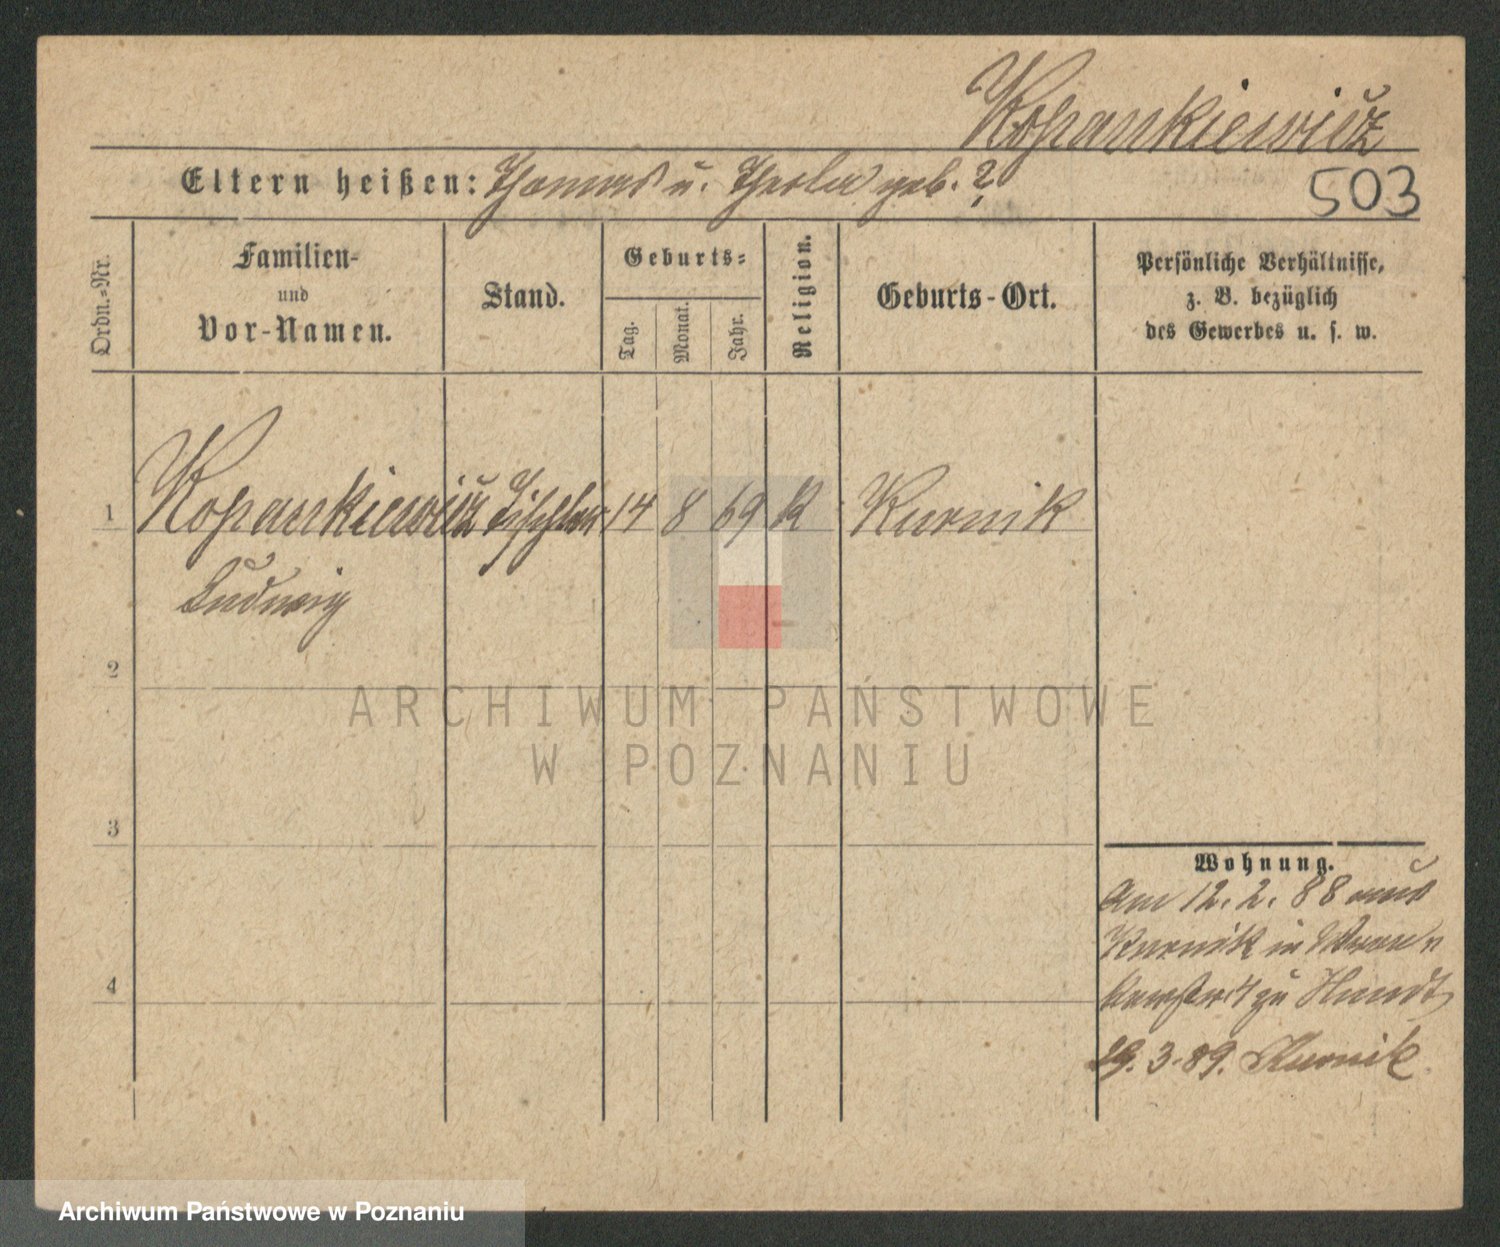 Kopankiewicz
Eltern heißen: Thomas u. Thecla geb. ?
503
Ordn.-Nr.
Familien-
und
Vor-Namen.
Stand.
Geburts-
Tag.
Monat.
Jahr.
Religion.
Geburts-Ort.
Persönliche Verhältnisse,
z. B. bezüglich
des Gewerbes u. s. w.
1 Kopankiewicz Tischler 14 8 69 K Kurnik
Ludwig
2
3
4
Wohnung.
Am 12. 2. 88 aus
Kurnik in
4 zu Hundt
29. 3. 89. Kurnik
ARCHIWUM PAŃSTWOWE
W POZNANIU
Archiwum Państwowe w Poznaniu